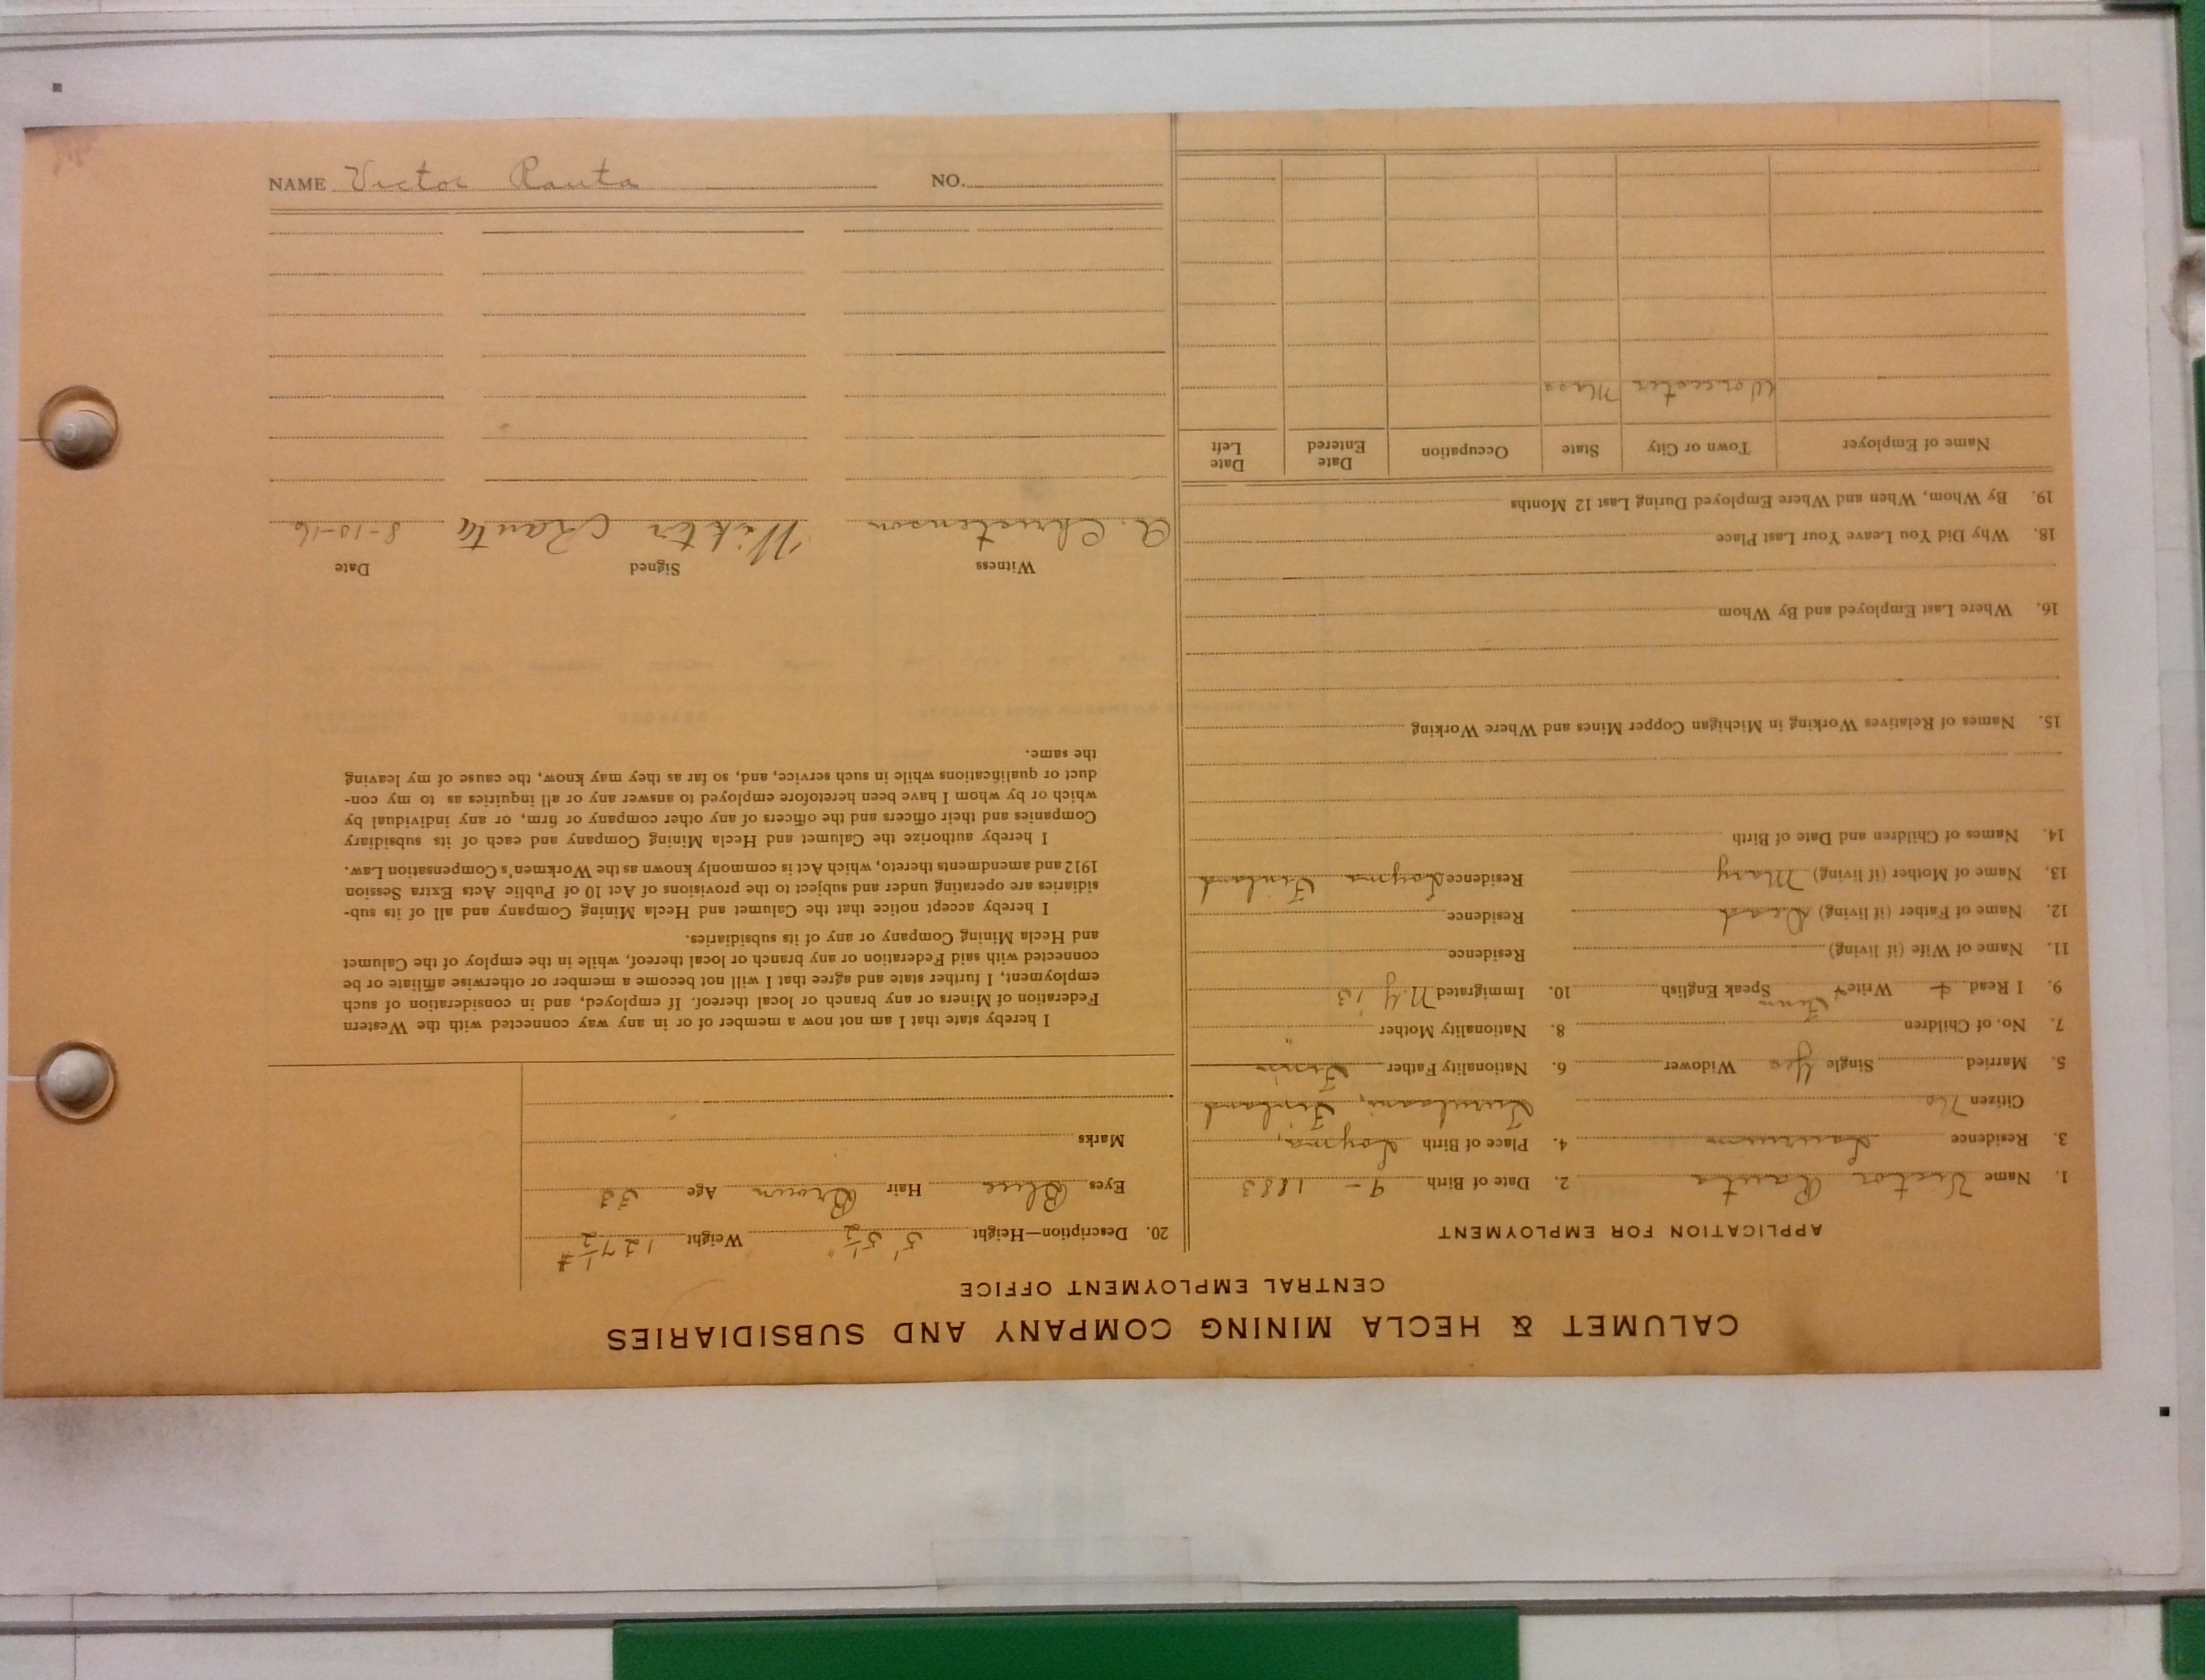 NAME Victor Rauta NO.
CALUMET & HECLA MINING COMPANY AND SUBSIDIARIES
CENTRAL EMPLOYMENT OFFICE
APPLICATION FOR EMPLOYMENT
1. Name Victor Rauta 2. Date of Birth 9- 1883
3. Residence 4. Place of Birth
Citizen No Finland
5. Married Single Yes Widower 6. Nationality Father Finn
7. No. of Children 8. Nationality Mother "
9. I Read Write Speak English Finn 10. Immigrated N.Y. 13
11. Name of Wife (if living) Residence
12. Name of Father (if living) Dead Residence
13. Name of Mother (if living) Mary Residence Finland
14. Names of Children and Date of Birth
15. Names of Relatives Working in Michigan Copper Mines and Where Working
16. Where Last Employed and By Whom
18. Why Did You Leave Your Last Place
19. By Whom, When and Where Employed During Last 12 Months
Name of Employer Town or City State Occupation Date Entered Date Left
Worcester Mass
20. Description—Height 5' 5½" Weight 127½ #
Eyes Blue Hair Brown Age 33
Marks
I hereby state that I am not now a member of or in any way connected with the Western
Federation of Miners or any branch or local thereof. If employed, and in consideration of such
employment, I further state and agree that I will not become a member or otherwise affiliate or be
connected with said Federation or any branch or local thereof, while in the employ of the Calumet
and Hecla Mining Company or any of its subsidiaries.
I hereby accept notice that the Calumet and Hecla Mining Company and all of its sub-
sidiaries are operating under and subject to the provisions of Act 10 of Public Acts Extra Session
1912 and amendments thereto, which Act is commonly known as the Workmen's Compensation Law.
I hereby authorize the Calumet and Hecla Mining Company and each of its subsidiary
Companies and their officers and the officers of any other company or firm, or any individual by
which or by whom I have been heretofore employed to answer any or all inquiries as to my con-
duct or qualifications while in such service, and, so far as they may know, the cause of my leaving
the same.
Witness Signed Date
A. Christenson Wiktor Rauta 8-10-16